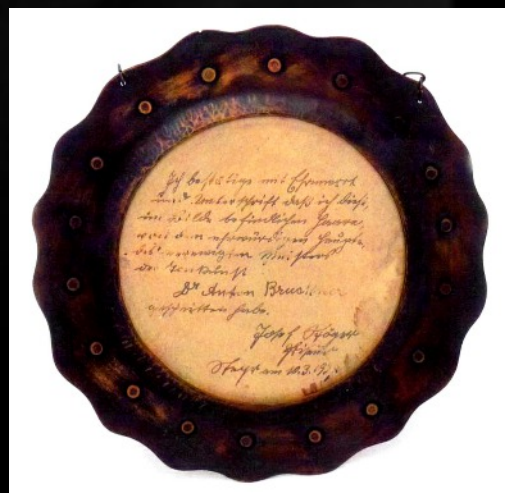 Ich bestätige mit Ehrenwort
und Unterschrift daß ich diese,
im Bilde befindlichen Haare,
von dem ehrwürdigen Haupte
des verewigten Meisters
der Tonkunst
Dr Anton Bruckner
geschnitten habe.
Josef Stöger
Friseur
Steyr am 10.3.